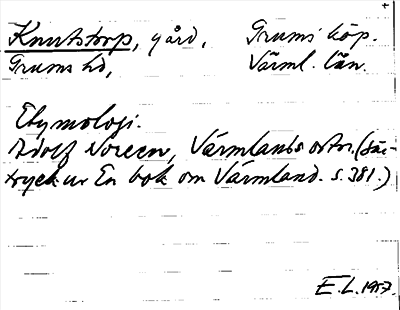 Knutstorp, gård, Grums köp.
Grums hd, Värml. län.
Etymologi.
Adolf Noreen, Värmlands ortn. (sär-
tryck ur En bok om Värmland. s. 381.)
E.L. 1957.